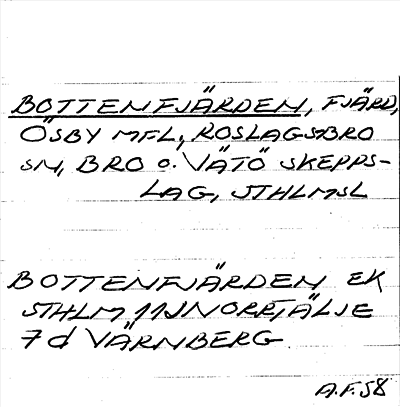 BOTTENFJÄRDEN, FJÄRD,
ÖSBY MFL, ROSLAGSBRO
SN, BRO O. VÄTÖ SKEPPS-
LAG, STHLMSL
BOTTENFJÄRDEN EK
STHLM 11J NORRTÄLJE
7d VÄRNBERG
A.F. 58